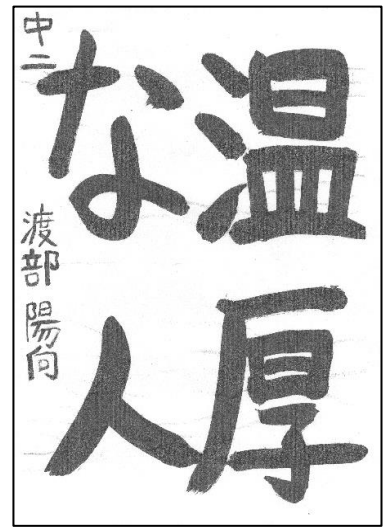 温厚
な人
中二 渡部 陽向